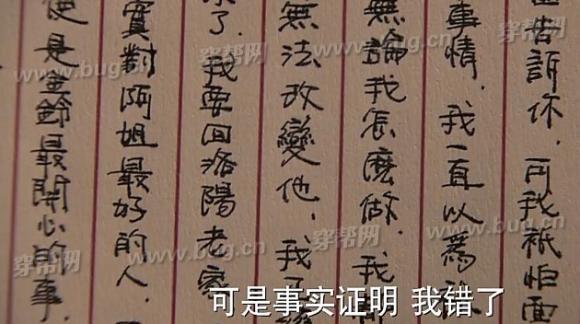 告訴你，可我祇怕
事情，我一直以為
無論我怎麼做，我
無法改變他，我
了，我要回洛陽老家
實對阿姐最好的人，
便是金鈴最開心的事，
可是事实证明 我错了
穿帮网
www.bug.cn
穿帮网
www.bug.cn
穿帮网
www.bug.cn
穿帮网
www.bug.cn